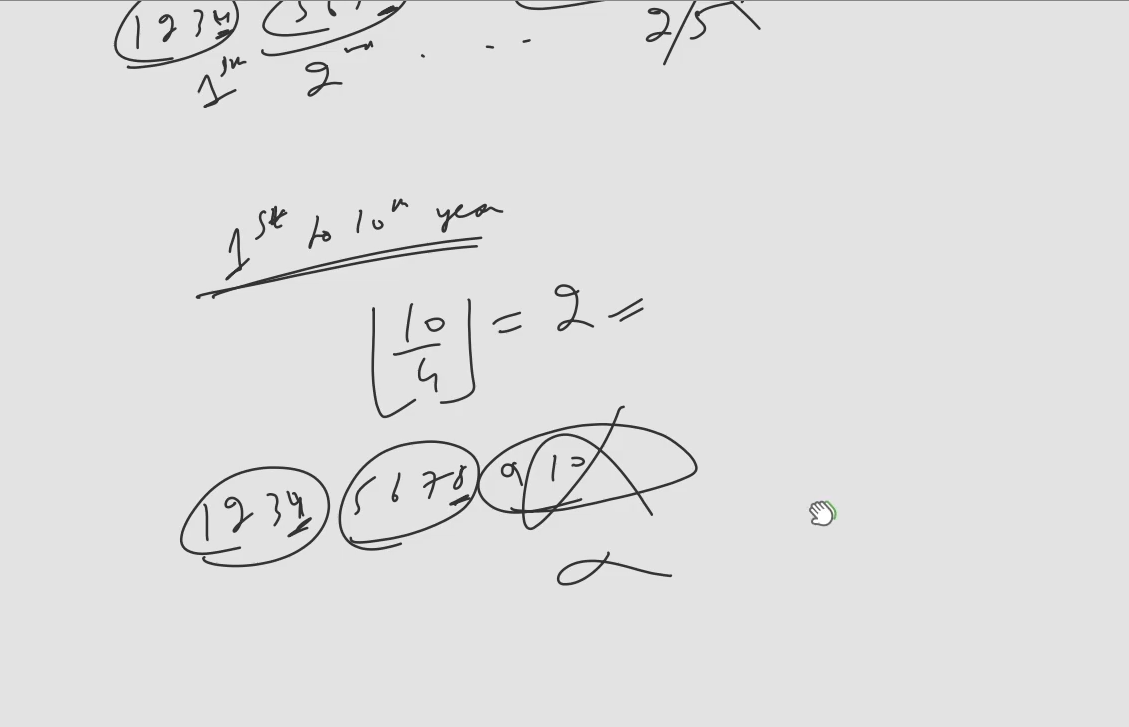 1 2 3 4 5 6 7
2/5
1st 2nd . - -
1st to 10th year
⌊10/4⌋ = 2 =
1 2 3 4 5 6 7 8 9 10